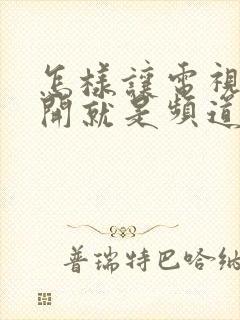 怎樣讓電視
開就是頻道
普瑞特巴哈納